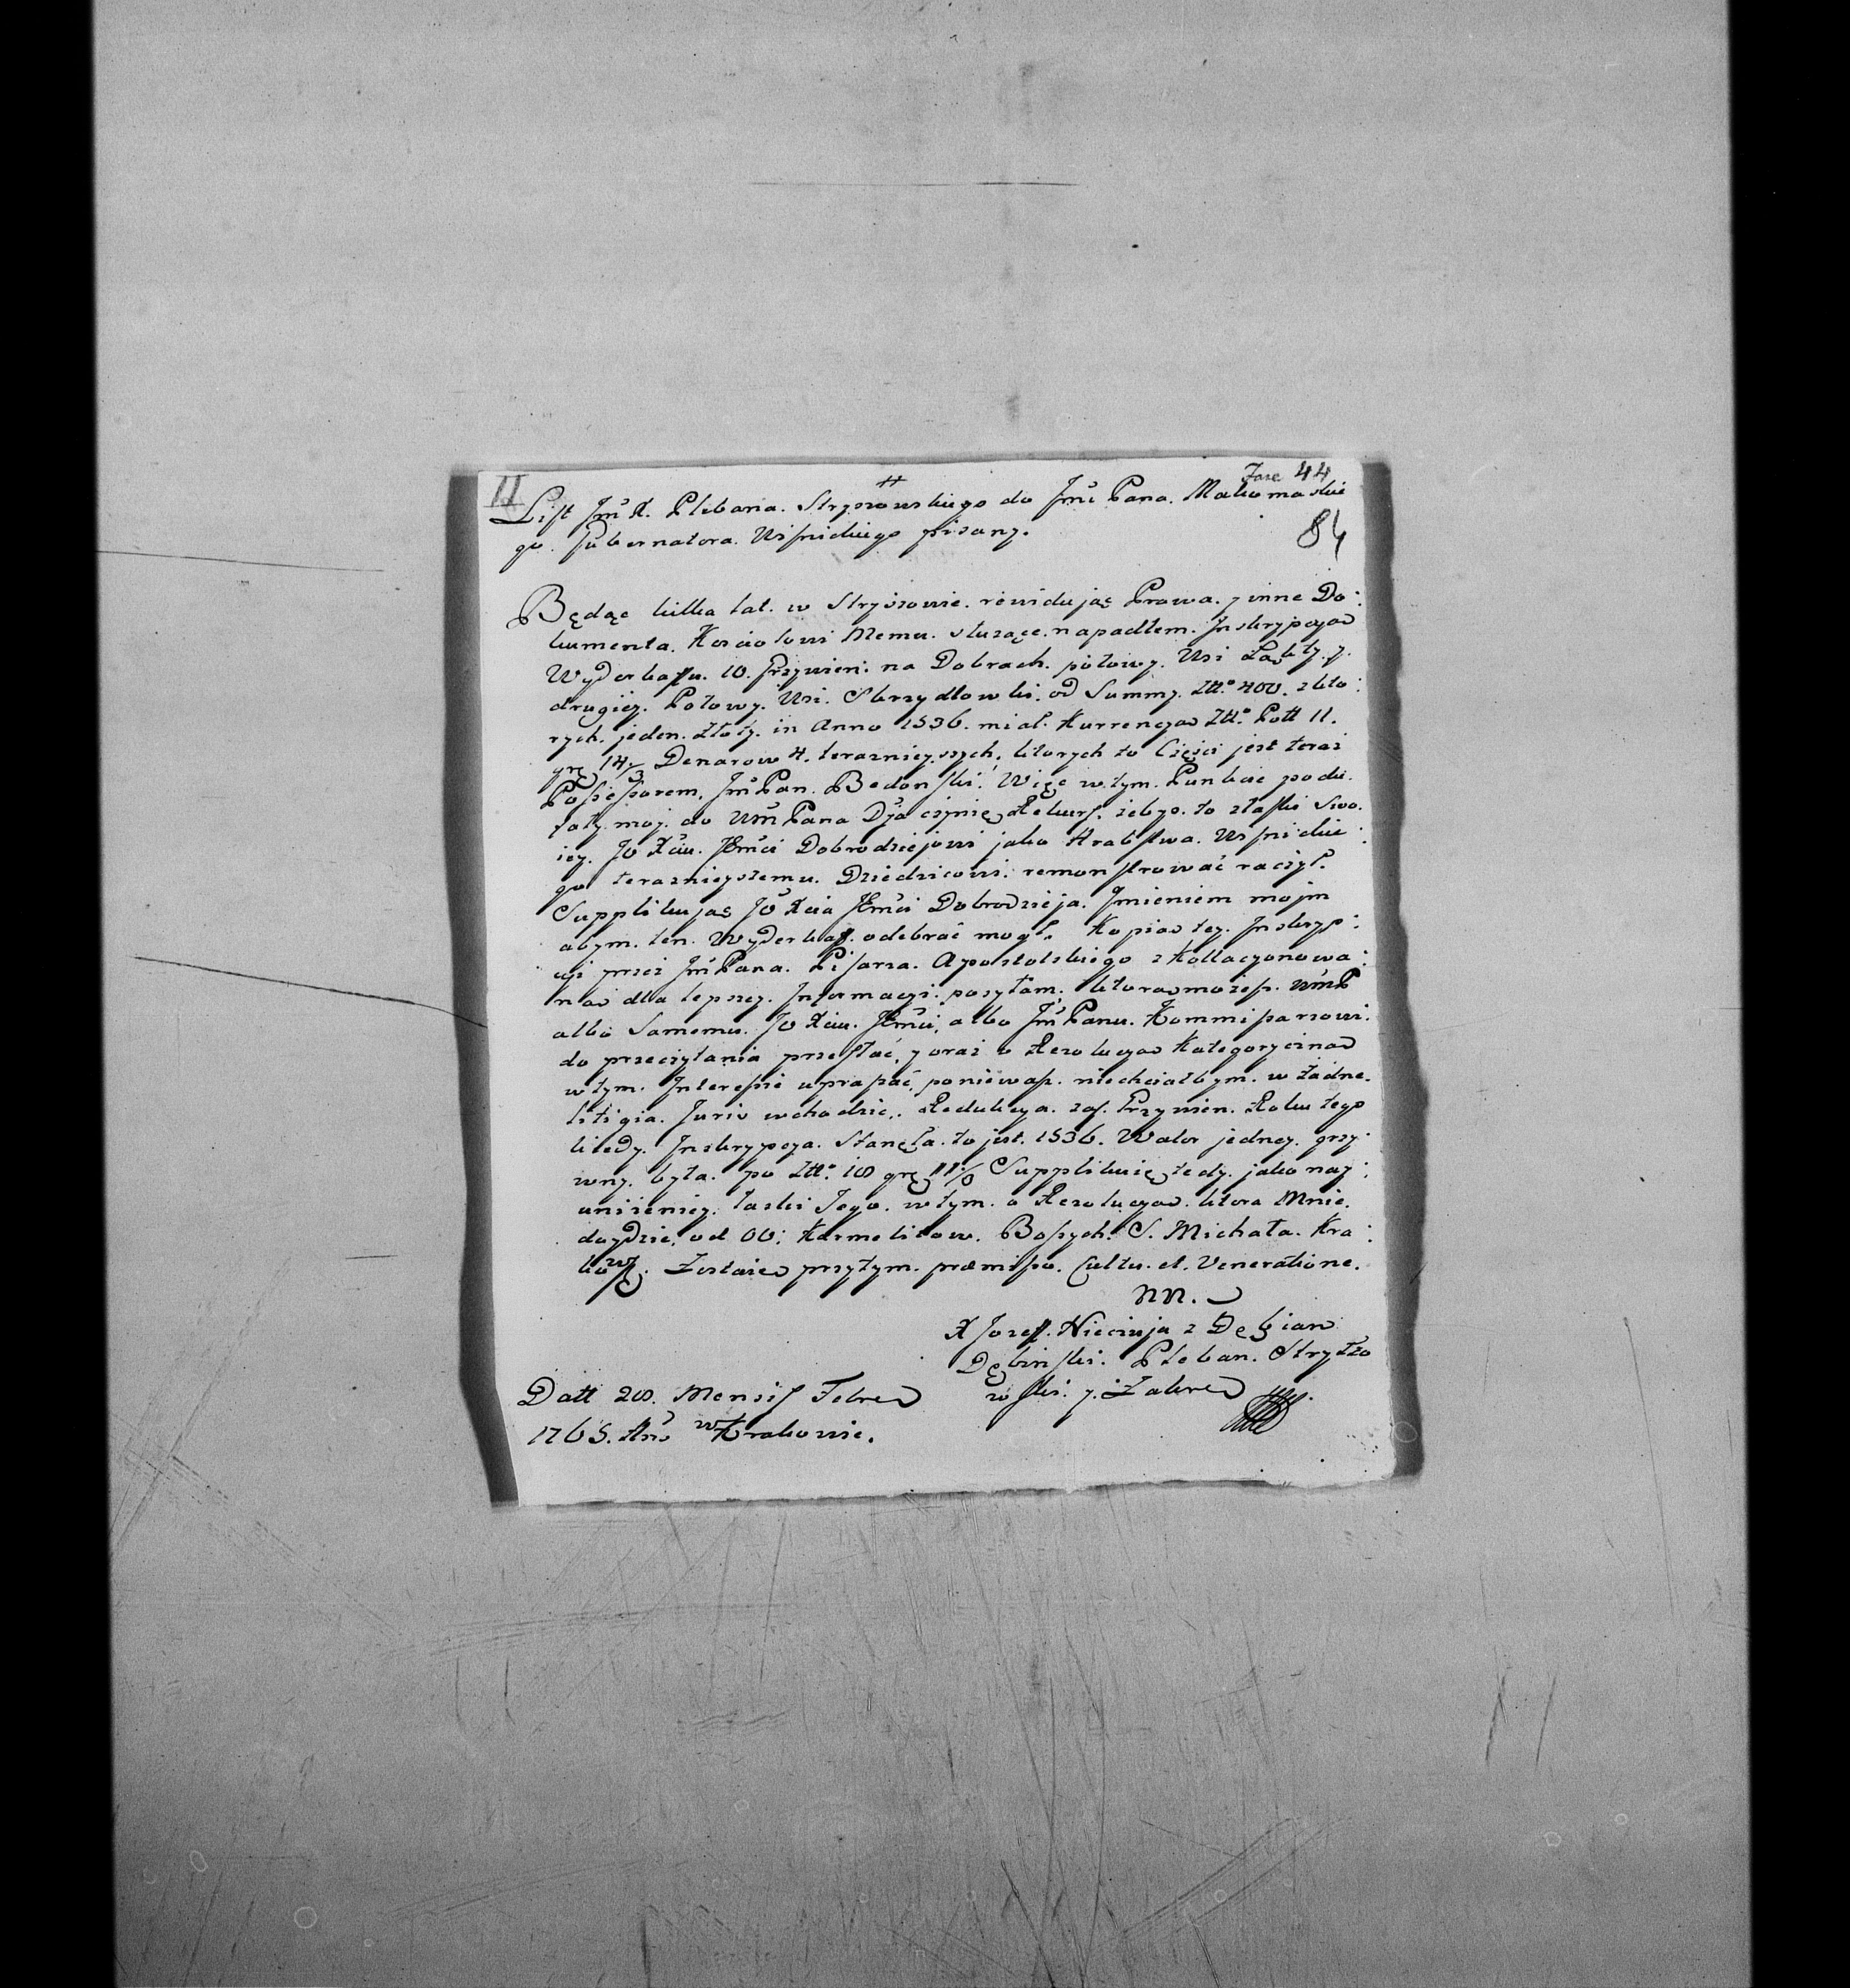 II
Fasc 44
84
List Jm̃ X. Plebana. Stryszowskiego do Jm̃ci Pana. Makomaskie
go. Gubernatora. Wiſnickiego pisany.
Będąc kilka lat. w Stryszowie. rewidując Prawa. y inne Do:
kumenta. Kosciołowi Memu. służące. napadłem. Inskrypcyą
Wyderkaſu. 10. Grzywien: na Dobrach. połowy. Wsi y.
drugiey. Połowy. Wsi. Skrzydlowki. od Summy. Złł.° 400. z kto:
rych. jeden. złoty. in Anno 1536. miał. Kurrencyą Złł.° Poll 11.
grę 14/3 Denarow 4. teraznieyszych, ktorych to Części jest teraz
Poſseſsorem, Jm̃ Pan. Bedonſki. Więc w tym. Punkcie podu.
fały. moy. do Wm̃ Pana Dja czynię Rekurſ. żebyś. to z łaſki Swo.
iey. JO Xciu. JEm̃ci Dobrodziejowi jako Hrabſtwa. Wiſnickie:
go terazniejszemu. Dziedzicowi. remonſtrować raczył.
Supplikując JO Xcia JEm̃ci Dobrodzieja. Imieniem mojm
abym. ten. Wyderkaſ. odebrać mogł. Kopią tey. Inskryp:
cyi przez Jm̃ Pana. Piſarza. Apostolskiego zkollacyonowa:
ną dla lepszey. Informacyi. posyłam. ktorą możeſz. Wm̃ P
albo Samemu. JO Xciu. JEm̃ci, albo Jm̃ Panu. Kommiſsarzowi.
do przeczytania przeſłać, y oraz o Rezolucyą Kategoryczną
w tym. Intereſsie upraſzać, poniewaſz. niechciałbym. w żadne.
litigia. Juris wchodzić. Redukcya. zaſ. Grzywien. Roku tego
kiedy. Inskrypcya. Stanęła. to jest. 1536. Walor jedney. grzy:
wny. była. po Złł.° 18 grę Supplikuię tedy. jako nay:
uniżeniey. łaski Jego. w tym. o Rezolucyą. ktora Mnie.
doydzie. od OO: Karmelitow. Boſych. S. Michała. Kra:
kowſ. Zostaię przytym. præmiſso. Cultu. et. Veneratione.
NN.
X Jozeſ. Nieciuja z Dębian
Dębinſki. Pleban. Stryszo
wſki. y. Zakrę
Datt 28. Mensiſ Febre
1765. Ano w Krakowie.